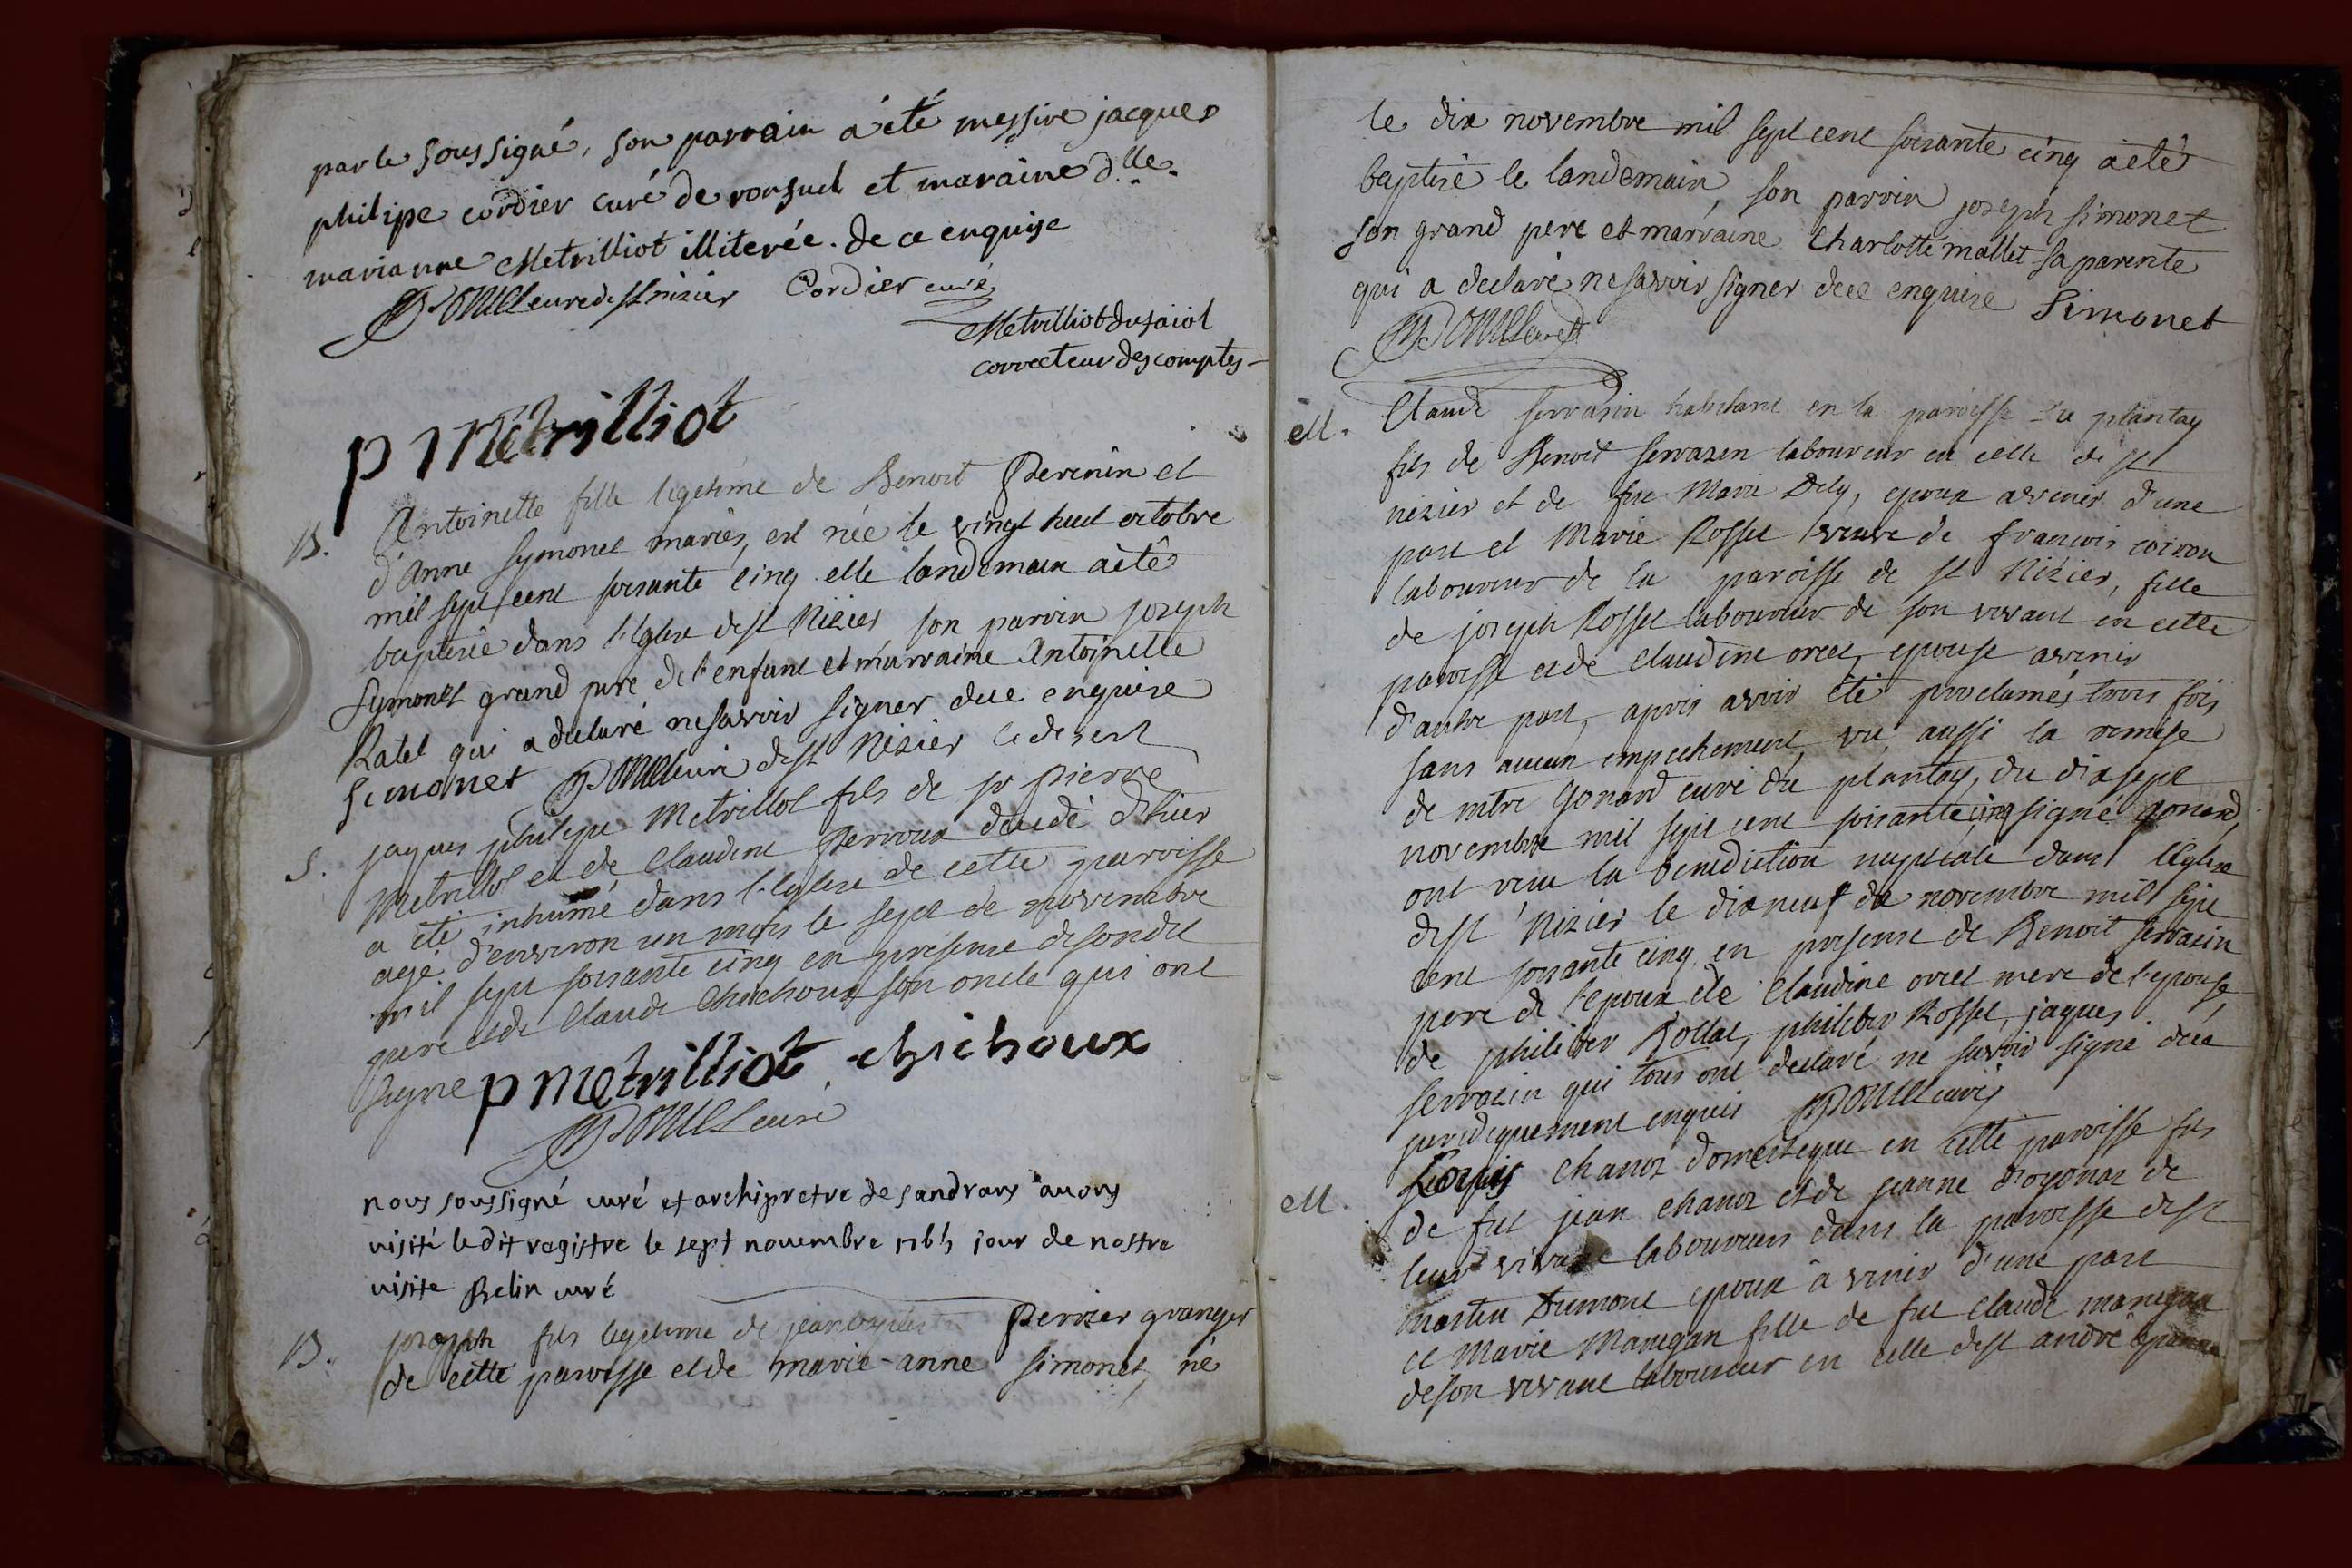 par le soussigné, son parrain a été messire jacques
philipe cordier curé de ronsuel et maraine d.lle
marianne Metrilliot illiterée. de ce enquise
curé de st nisier Cordier curé
Metrilliot dusaiol
correcteur des comptes
p Métrilliot
B. Antoinette fille legetime de Benoit Perinin et
d'Anne Symonet mariés, est née le vingt huit octobre
mil sept cent soixante cinq elle landemain a êté
baptisée dans l'eglise de st Nizier son parrin joseph
Symonet grand pere de l'enfant et marraine Antoinette
Ratel qui a declaré ne savoir signer de ce enquise
Simonet curé de st Nizier le desert
S. jaques philipe Metrillot fils de sr pierre
Metrillot et de Claudine Perroux decedé d'hier
a été inhumé dans l'eglise de cette paroisse
agé d'environ un mois le sept de novembre
mil sept soixante cinq en presence de son dit
pere et de Claude Chichoux son oncle qui ont
signe p Métrilliot chichoux
curé
nous soussigné curé et archipretre de sandrans auons
visité le dit registre le sept nouembre 1765 jour de nostre
visite Belin curé
B. joseph fils legitime de jean baptiste Perrier granger
de cette paroisse et de marie-anne simonet, né
le dix novembre mil sept cent soixante cinq a eté
baptisé le landemain, son parrin joseph simonet
son grand pere et marraine Charlotte mallet sa parente
qui a declaré ne savoir signer de ce enquise Simonet
curé
M. Claude serrasin habitant en la paroisse du plantay
fils de Benoit serrazin laboureur en celle de st
nizier et de fue Marie Dely, epoux avenir d'une
part et Marie Rosset veuve de francois corron
laboureur de la paroisse de st Nizier, fille
de joseph Rosset laboureur de son vivant en cette
paroisse et de Claudine orcet, epouse avenir
d'autre part, apres avoir été proclamés trois fois
sans aucun empechement, vu aussi la remise
de mtre Gonard curé du plantay, du dix sept
novembre mil sept cent soixante cinq signé gonard,
ont reçu la benediction nuptiale dans l'Eglise
de st Nizier le dix neuf de novembre mil sept
cent soixante cinq en presence de Benoit serrazin
pere de l'epoux de Claudine orcet mere de l'epouse,
de philiber Rollat, philiber Rosset, jaques
serrazin qui tous ont declaré ne savoir signé de ce
juridiquement enquis curé
M. Louis Chanoz domestique en cette paroisse fils
de fut jean chanoz et de jeanne d'oyonaz de
leur vivant laboureurs dans la paroisse de st
martin Dumont epoux a venir d'une part
et Marie Manigan fille de fut Claude manigan
de son vivant laboureur en celle de st andré